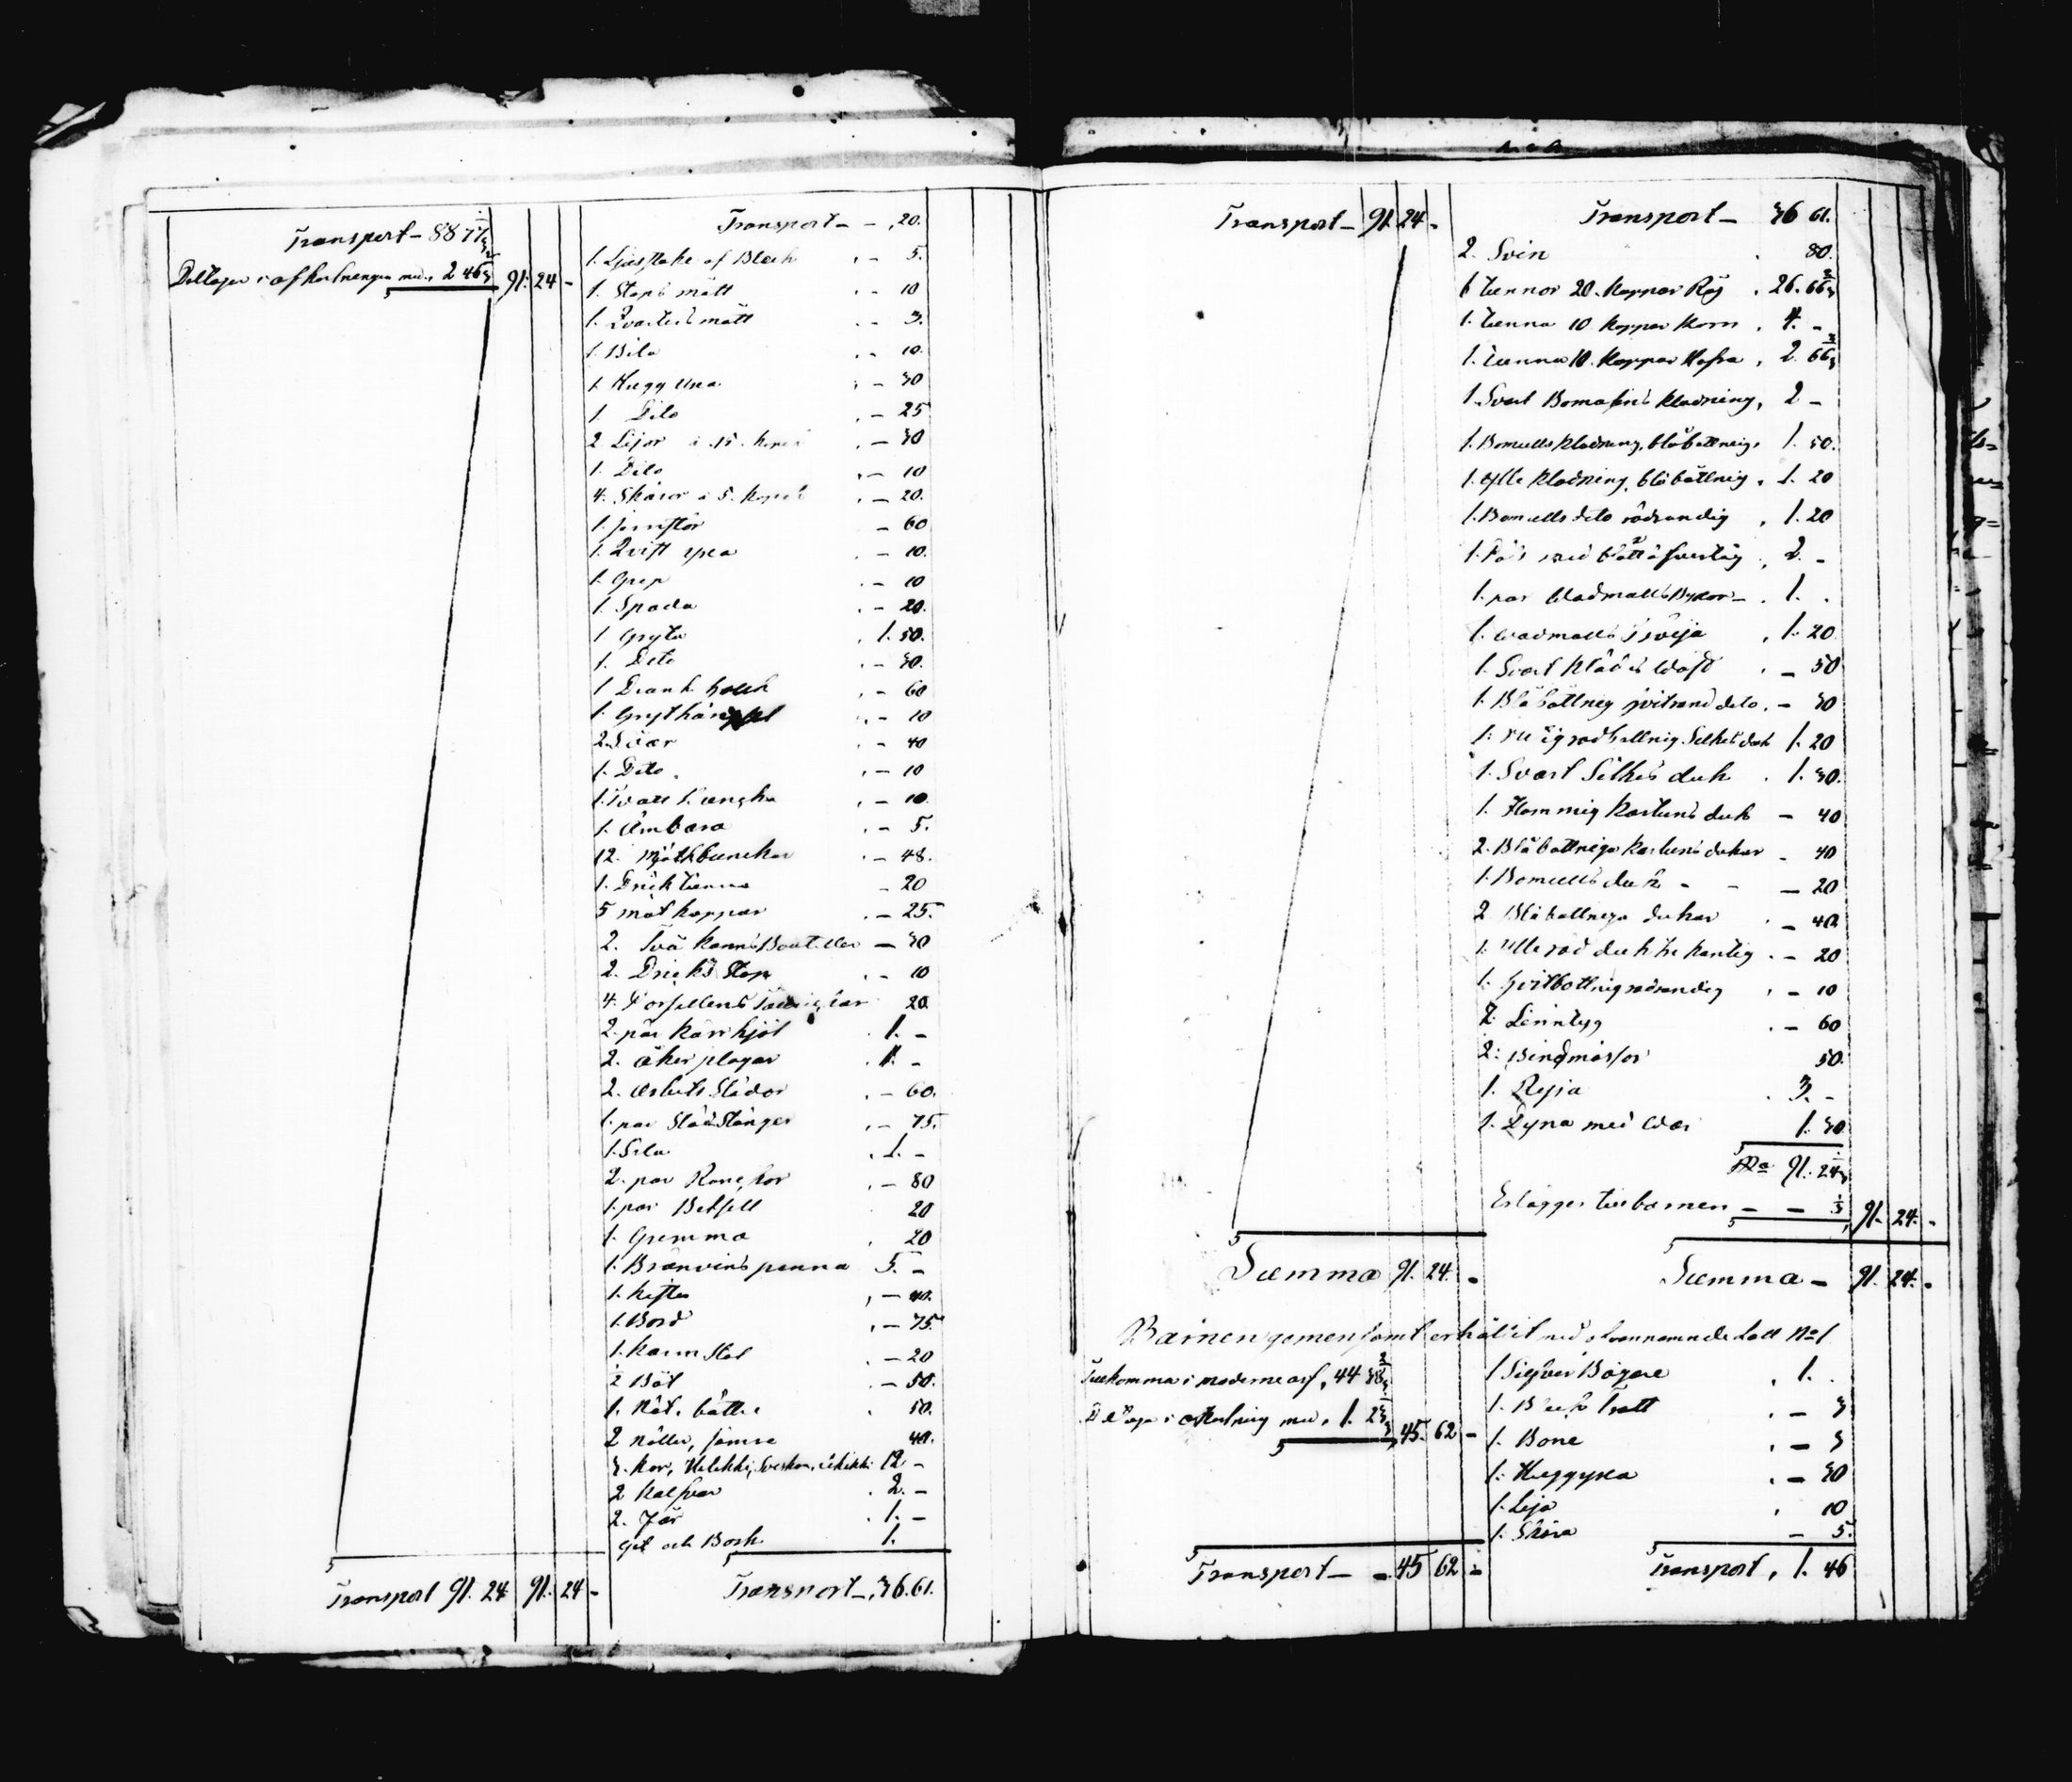 Transport - 88 77 1/3
Deltager i afkortningen med, 2 46 2/3 91. 24 -
Transport 91. 24 91. 24 -
Transport - - , 20.
1. Ljusstake af Bleck , - 5.
1. Stops mått . - 10
1. Qvarters mått . - 3.
1. Bila . - 10.
1. Hugg yxa . - 30
1 Dito . - 25
2 Lijor à 15. kopek . - 30
1. Dito . - 10
4. Skäror à 5. kopek . - 20.
1. jernstör - 60
1. Qvist yxa . - 10.
1. Grep . - 10
1. Spada . - 20.
1 Gryta . 1. 50.
1. Dito . - 30.
1 Drank . - 60
1. Grythängsel . - 10
2. Såar . - 40
1. Dito . - 10
1. . - 10.
1. Ämbara . - 5.
12. Mjölkbunckar . - 48.
1. Drick tunna - 20
5 mat koppar . - 25.
2. Två kanns Bouteller - 30
2. Dricks Stop . - 10
4. Porsellens 20.
2. par Kärrhjol . 1. -
2. åker plogar . 1. -
2. arbets Slädor . - 60.
1. par Släd Stänger . - 75.
1. Sela . 1. -
2. par . - 80
1. par Betsell 20
1. Grimma . 20
1. Bränvins panna 5. -
1. kista , - 40.
1. Bord . - 75.
1. karm Stol . - 20
2 Båt . - 50.
1. Nöt, . 50.
2 nötter, 40.
3. kor, 12 -
2 Kalfvar . 2. -
2. Får . 1. -
Get och Bock 1.
Transport - , 36. 61.
Transport - 91 24 -
Summa 91. 24. -
Transport - 36 61.
2. Svin . 80.
6 tunnor 20. kappar Råg . 26. 66 2/3
1. tunna 10 kappar korn . 4. -
1. tunna 10. kappar Hafra , 2. 66 2/3
1. Svart Bomasins klädning, 2 -
1. Bomulls klädning, blåbottnig, 1. 50.
1. ylle klädning, blåbottnig , 1. 20
1. Bomulls dito rödrandig , 1. 20
1. Päls med blått öfvertåg , 2. -
1. par Wadmalls Byxor - . 1. .
1. Wadmalls Tröija , 1. 20
1. Svart Klädes Wäst . - 50
1. Blåbottnig hvitrand dito. - 30
1. rödbottnig Silkes duk 1. 20
1. Svart Silkes duk . 1. 30.
1. Flammig kartuns duk - 40
2. Blåbottniga kartuns dukar - 40
1. Bomulls duk - - - 20
2 Blåbottniga dukar . - 40
1. Ylle röd duk tre kantig . - 20
1. hvitbottnig rödrandig . - 10
7. Linntyg . - 60
2. Bindmössor 50.
1. Ryja . 3. -
1. Dyna med War 1. 30
S:a 91. 24 1/3
Erlägger till barnen - - 1/3 91. 24. -
Summa - 91. 24. -
Barnen gemensamt erhållit med ofvannämnde Lott No 1
Tillkomma i moderne arf, 44 38 2/3
Deltager i afkortning med, 1. 23 1/3 45. 62 -
Transport - - 45 62 -
1 Silfver Bägare . 1. .
1. Bleck Tratt . - 3
1. Bone . - 3
1. Huggyxa . - 30
1. Lija . 10
1. Skära - 5.
Transport , 1. 46